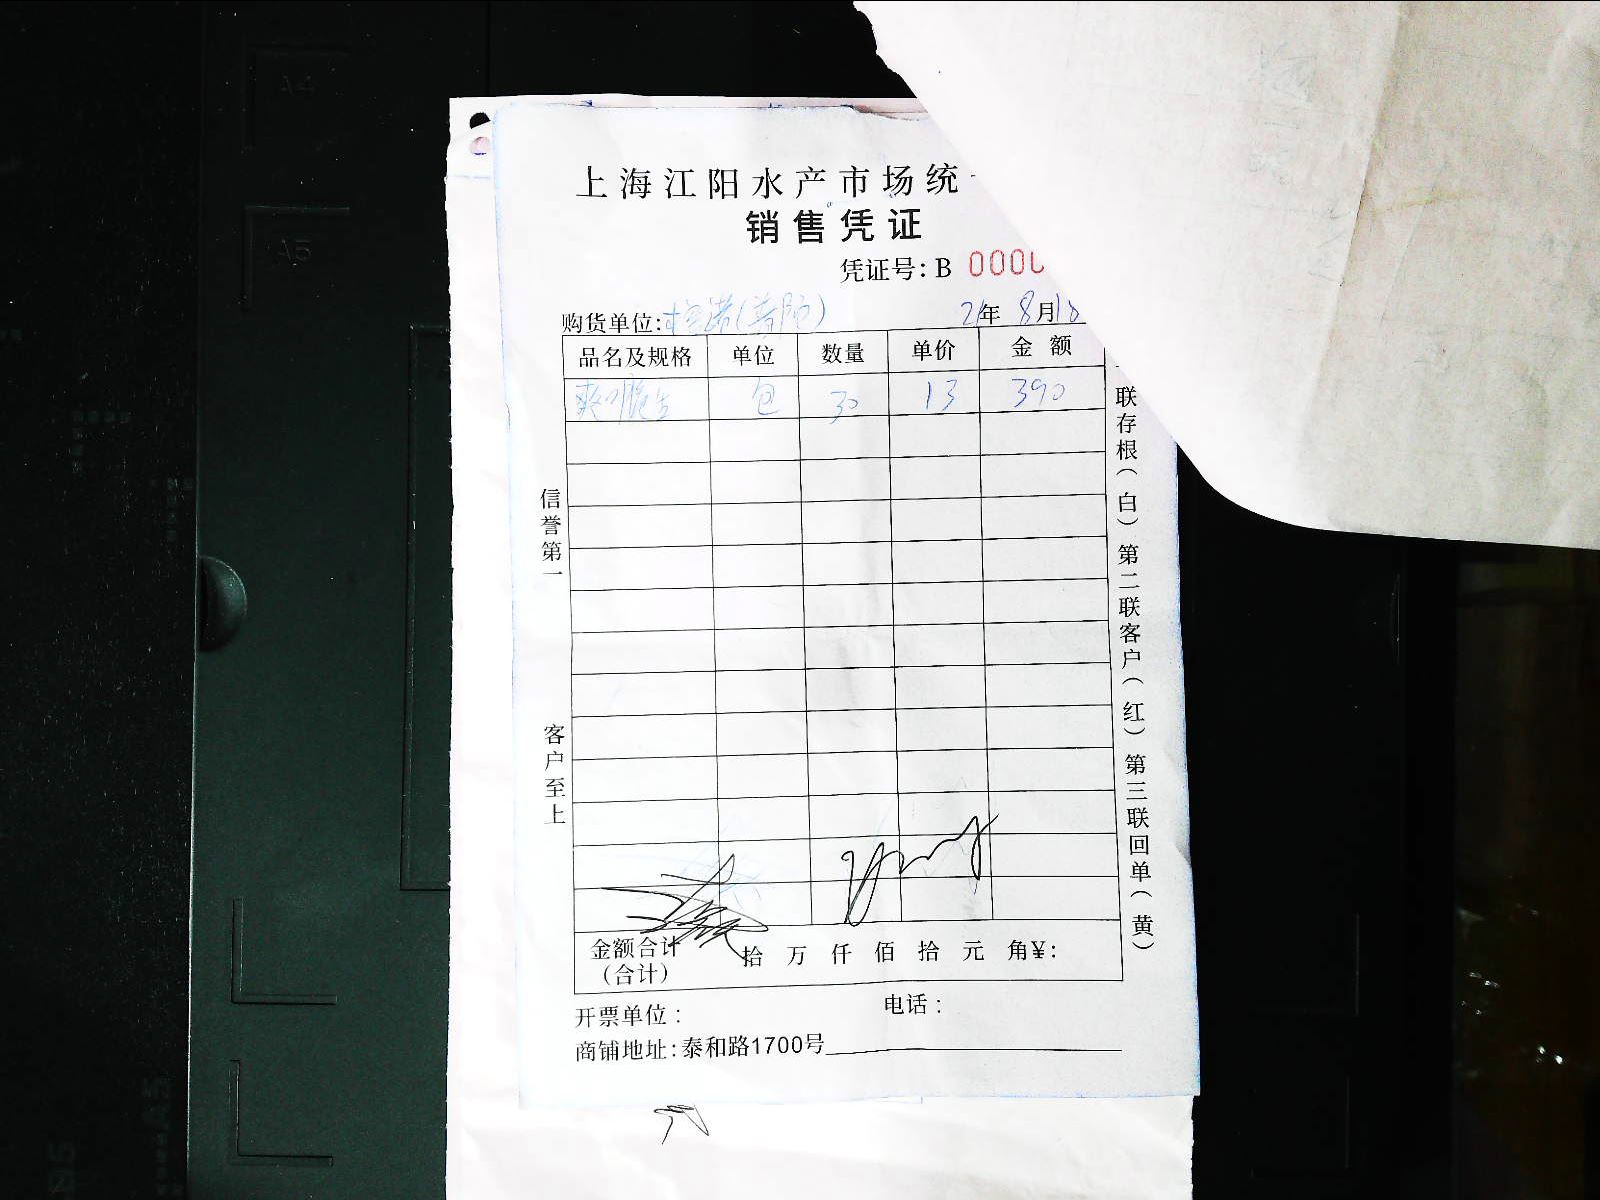 上海江阳水产市场统
销售凭证
凭证号：B 0000
购货单位：
21年 8月18
品名及规格 单位 数量 单价 金额
包 30 13 390
信誉第一
客户至上
联存根（白）第二联客户（红）第三联回单（黄）
金额合计 拾 万 仟 佰 拾 元 角¥：
（合计）
开票单位：
电话：
商铺地址：泰和路1700号
A4
A5
A5